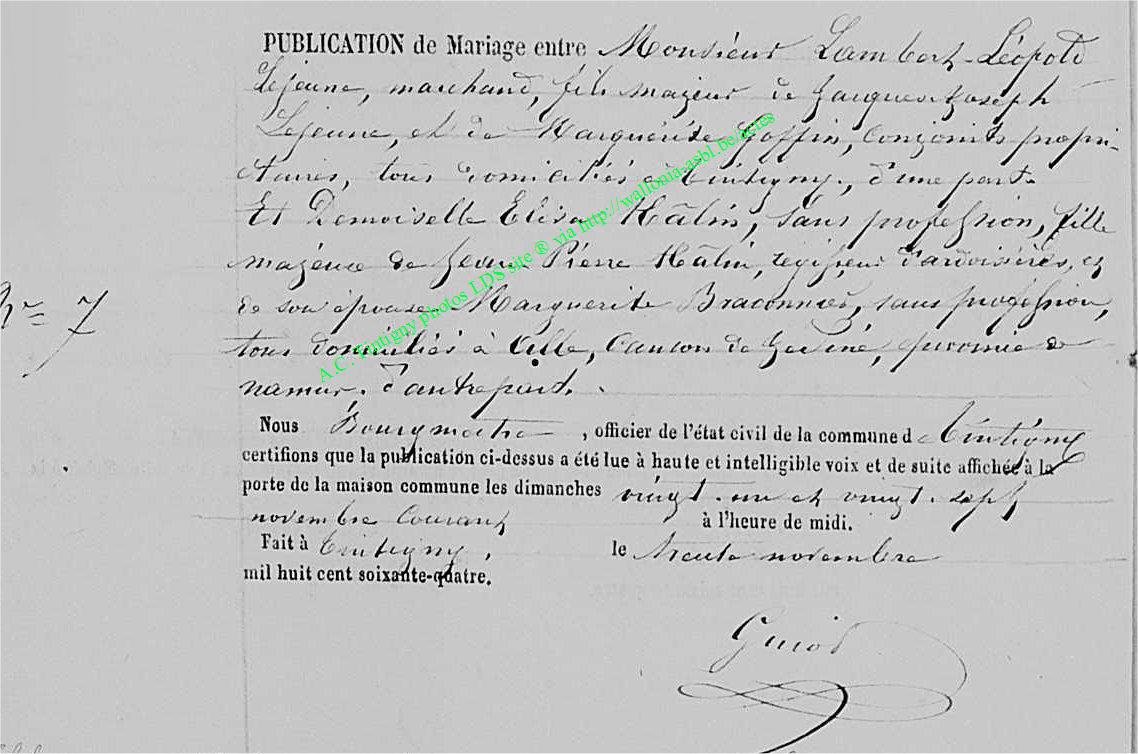 PUBLICATION de Mariage entre Monsieur Lambert-Léopold
Lejeune, marchand, fils majeur de Jacques Joseph
Lejeune, et de Marguerite Goffin, conjoints propri-
étaires, tous domiciliés à Tintigny, d'une part.
Et Demoiselle Elisa Hâlin, sans profession, fille
majeure de Jean Pierre Hâlin, régisseur d'ardoisières, et
de son épouse Marguerite Braconnier, sans profession,
tous domiciliés à Alle, Canton de Gedinne, province de
namur, d'autre part.
N° 7
Nous Bourgmestre, officier de l'état civil de la commune d e Tintigny
certifions que la publication ci-dessus a été lue à haute et intelligible voix et de suite affichée à la
porte de la maison commune les dimanches vingt-un et vingt-sept
novembre courant à l'heure de midi.
Fait à Tintigny, le trente novembre
mil huit cent soixante-quatre.
A.C. Tintigny photos LDS site ® via http://wallonia-asbl.be/actes